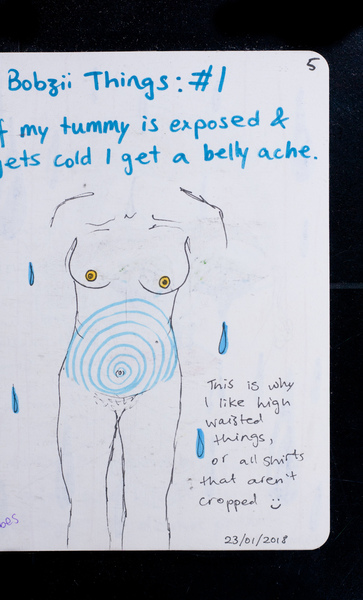 5
Bobzii Things: #1
f my tummy is exposed &
gets cold I get a belly ache.
This is why
I like high
waisted
things,
or all shirts
that aren't
cropped :)
23/01/2018